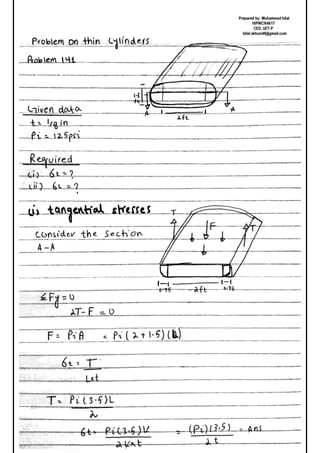 Prepared by: Muhammad bilal
16PWCIV4617
CED, UET.P
bilal.akhund6@gmail.com
Problem on thin cylinders
Problem 141
1.5
A
A
2ft
Given data
t = 1/8 in
Pi = 125psi
Required
(i) 6t = ?
(ii) 6L = ?
(i) tangential stresses
Consider the Section
A-A
T
F
T
0.75
2ft
0.75
ΣFy = 0
2T-F = 0
F = PiA = Pi (2+1.5)(L)
6t = T
Lxt
T = Pi (3.5)L
2
6t = Pi(3.5)L = (Pi)(3.5) = Ans
2Lxt
2t